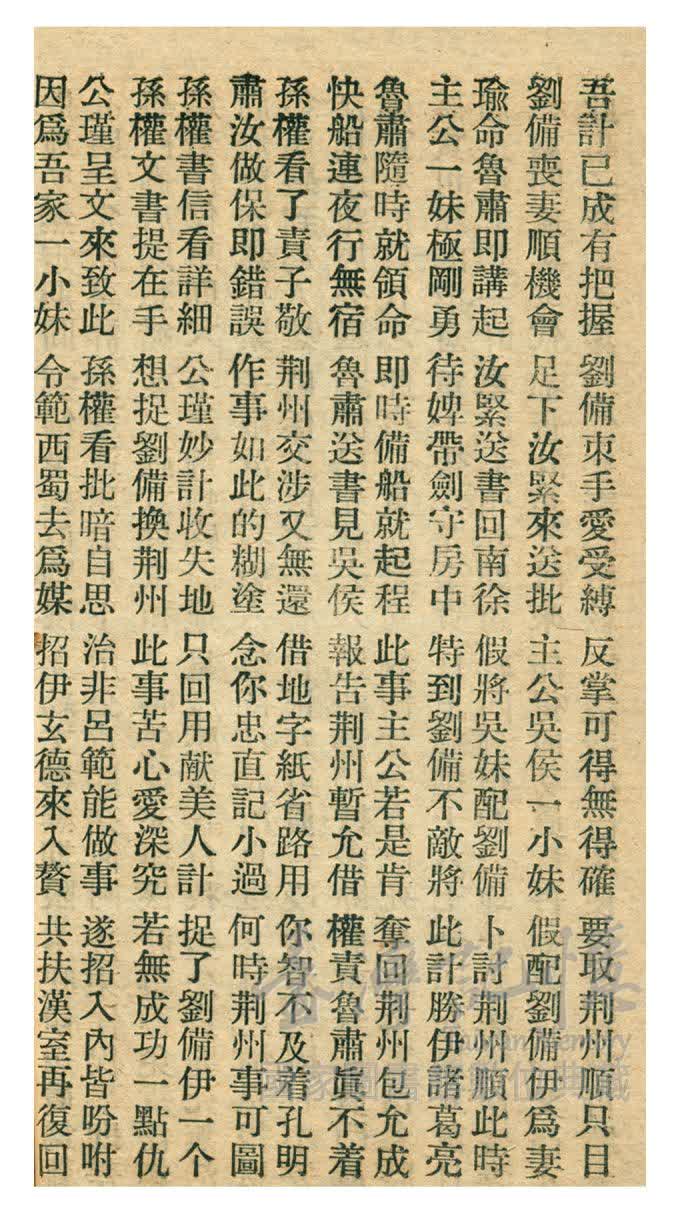 吾計已成有把握　劉備束手愛受縛　反掌可得無得確　要取荆州順只目
劉備喪妻順機會　足下汝緊來送批　主公吳侯一小妹　假配劉備伊爲妻
瑜命魯肅即講起　汝緊送書回南徐　假將吳妹配劉備　卜討荆州順此時
主公一妹極剛勇　待婢帶劍守房中　特到劉備不敵將　此計勝伊諸葛亮
魯肅隨時就領命　即時備船就起程　此事主公若是肯　奪回荆州包允成
快船連夜行無宿　魯肅送書見吳侯　報告荆州暫允借　權責魯肅眞不着
孫權看了責子敬　荆州交涉又無還　借地字紙省路用　你智不及着孔明
肅汝做保即錯誤　作事如此的糊塗　念你忠直記小過　何時荆州事可圖
孫權書信看詳細　公瑾妙計收失地　只回用献美人計　捉了劉備伊一个
孫權文書提在手　想捉劉備換荆州　此事苦心愛深究　若無成功一點仇
公瑾呈文來致此　孫權看批暗自思　治非呂範能做事　遂招入內皆吩咐
因爲吾家一小妹　令範西蜀去爲媒　招伊玄德來入贅　共扶漢室再復回